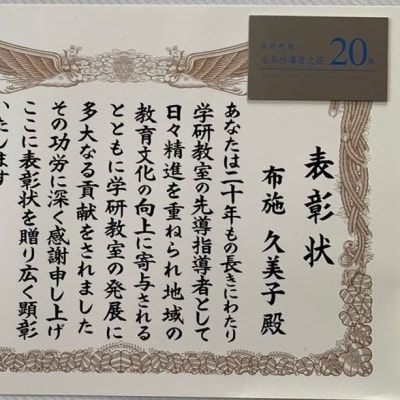 学研教室
永年指導者之証 20年
表彰状
布施 久美子 殿
あなたは二十年もの長きにわたり
学研教室の先導指導者として
日々精進を重ねられ地域の
教育文化の向上に寄与される
とともに学研教室の発展に
多大なる貢献をされました
その功労に深く感謝申し上げ
ここに表彰状を贈り広く顕彰
いたします